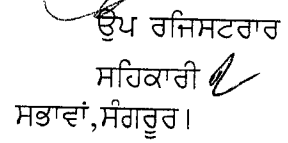 ਉਪ ਰਜਿਸਟਰਾਰ
ਸਹਿਕਾਰੀ
ਸਭਾਵਾਂ,ਸੰਗਰੂਰ।